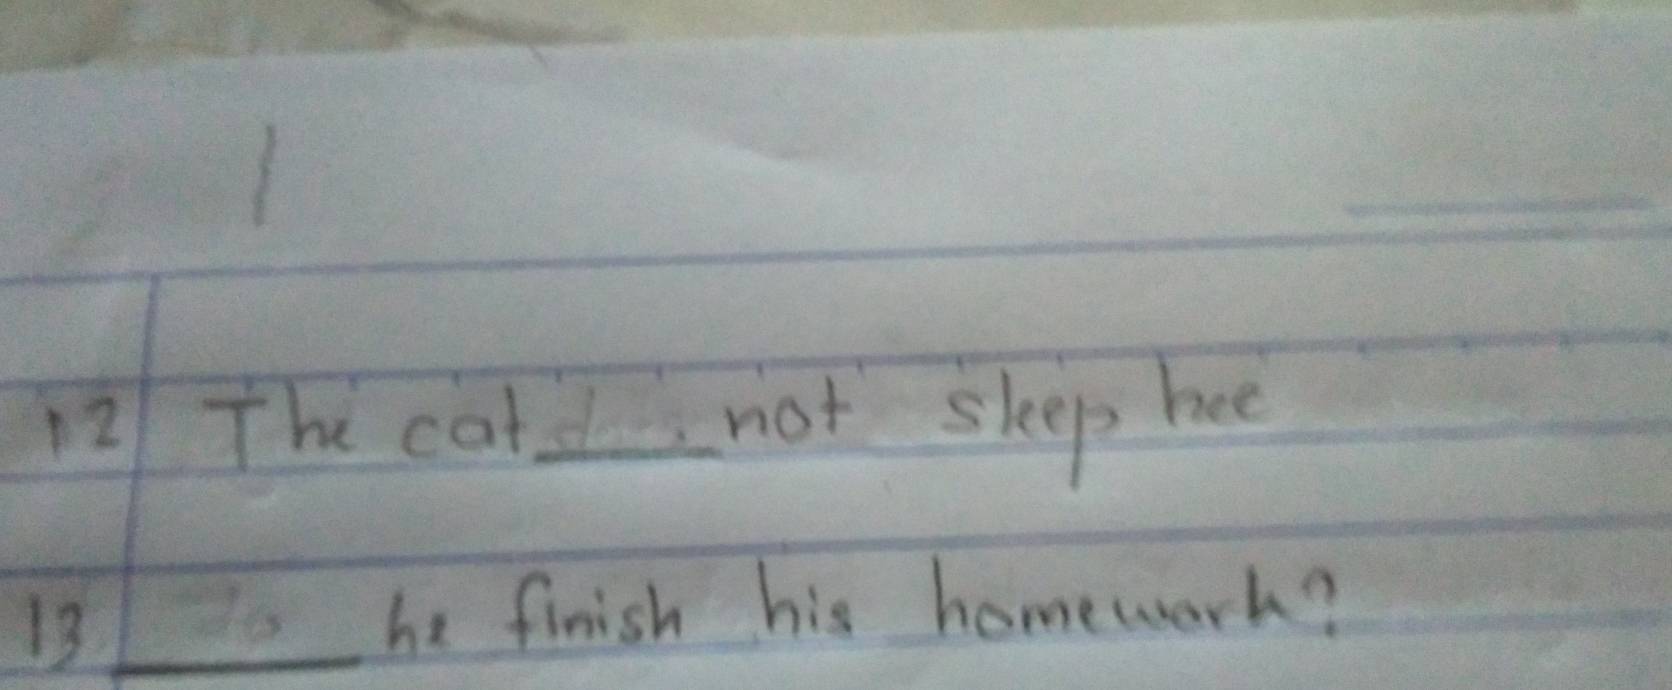 12 The cat does not sleep hee
13 do he finish his homework?